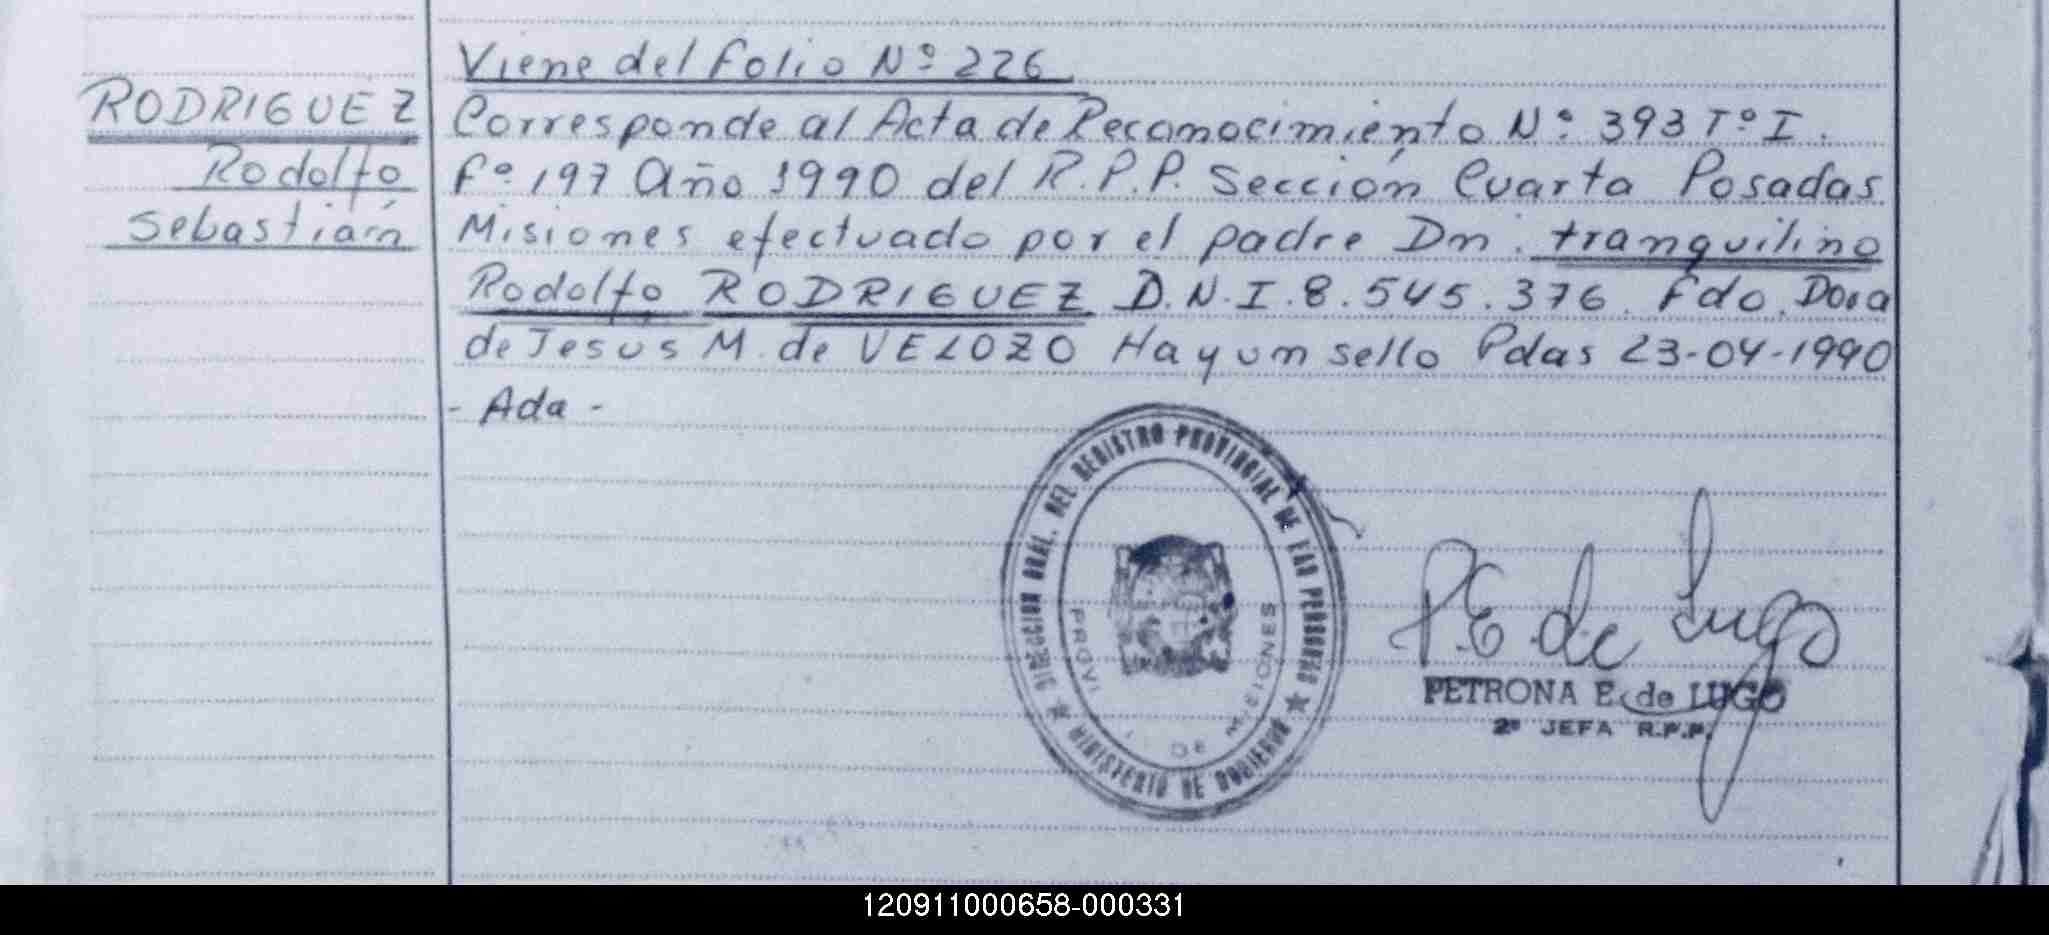 Viene del folio Nº 226
RODRIGUEZ
Rodolfo
Sebastián
Corresponde al Acta de Reconocimiento Nº 393 Tº I.
Fº 197 Año 1990 del R.P.P. Sección Cuarta Posadas
Misiones efectuado por el padre Dn. tranquilino
Rodolfo RODRIGUEZ D.N.I. 8.545.376. Fdo. Dora
de Jesus M. de VELOZO Hay un sello Pdas 23-04-1990
- Ada -
DIRECCION GRAL. DEL REGISTRO PROVINCIAL DE LAS PERSONAS
MINISTERIO DE GOBIERNO
PROVI DE MISIONES
P.E. de Lugo
PETRONA E. de LUGO
2ª JEFA R.P.P.
120911000658-000331